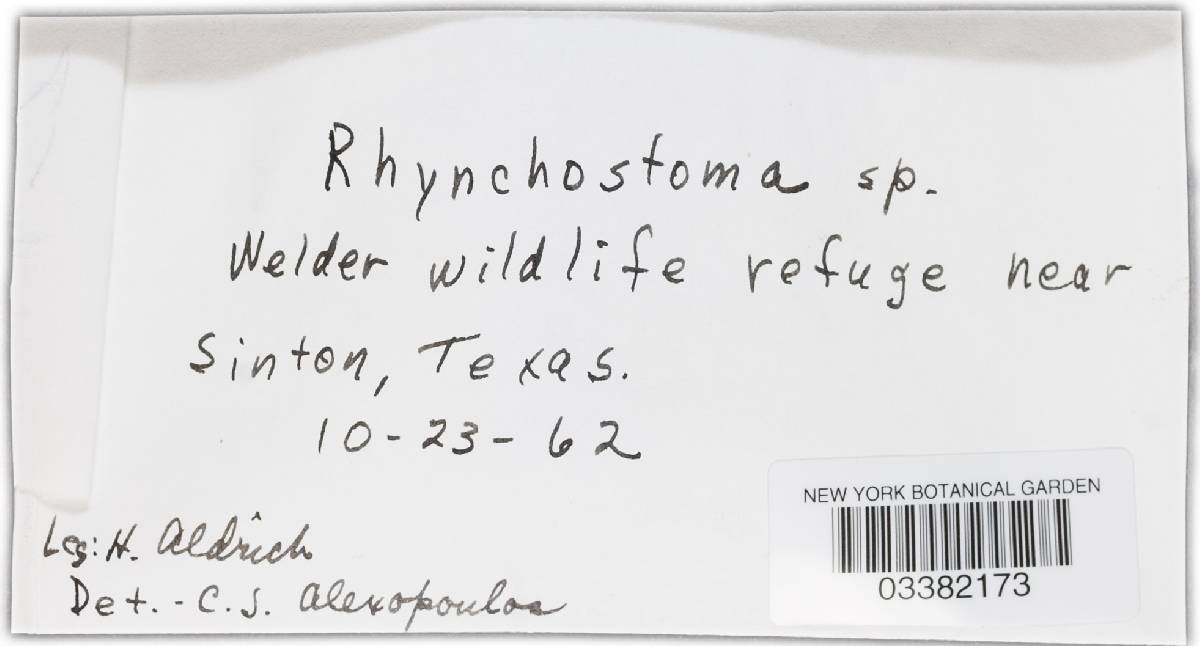 Rhynchostoma sp.
Welder wildlife refuge near
Sinton, Texas.
10-23-62
Leg: H. Aldrich
Det. - C. J. Alexopoulos
NEW YORK BOTANICAL GARDEN
03382173